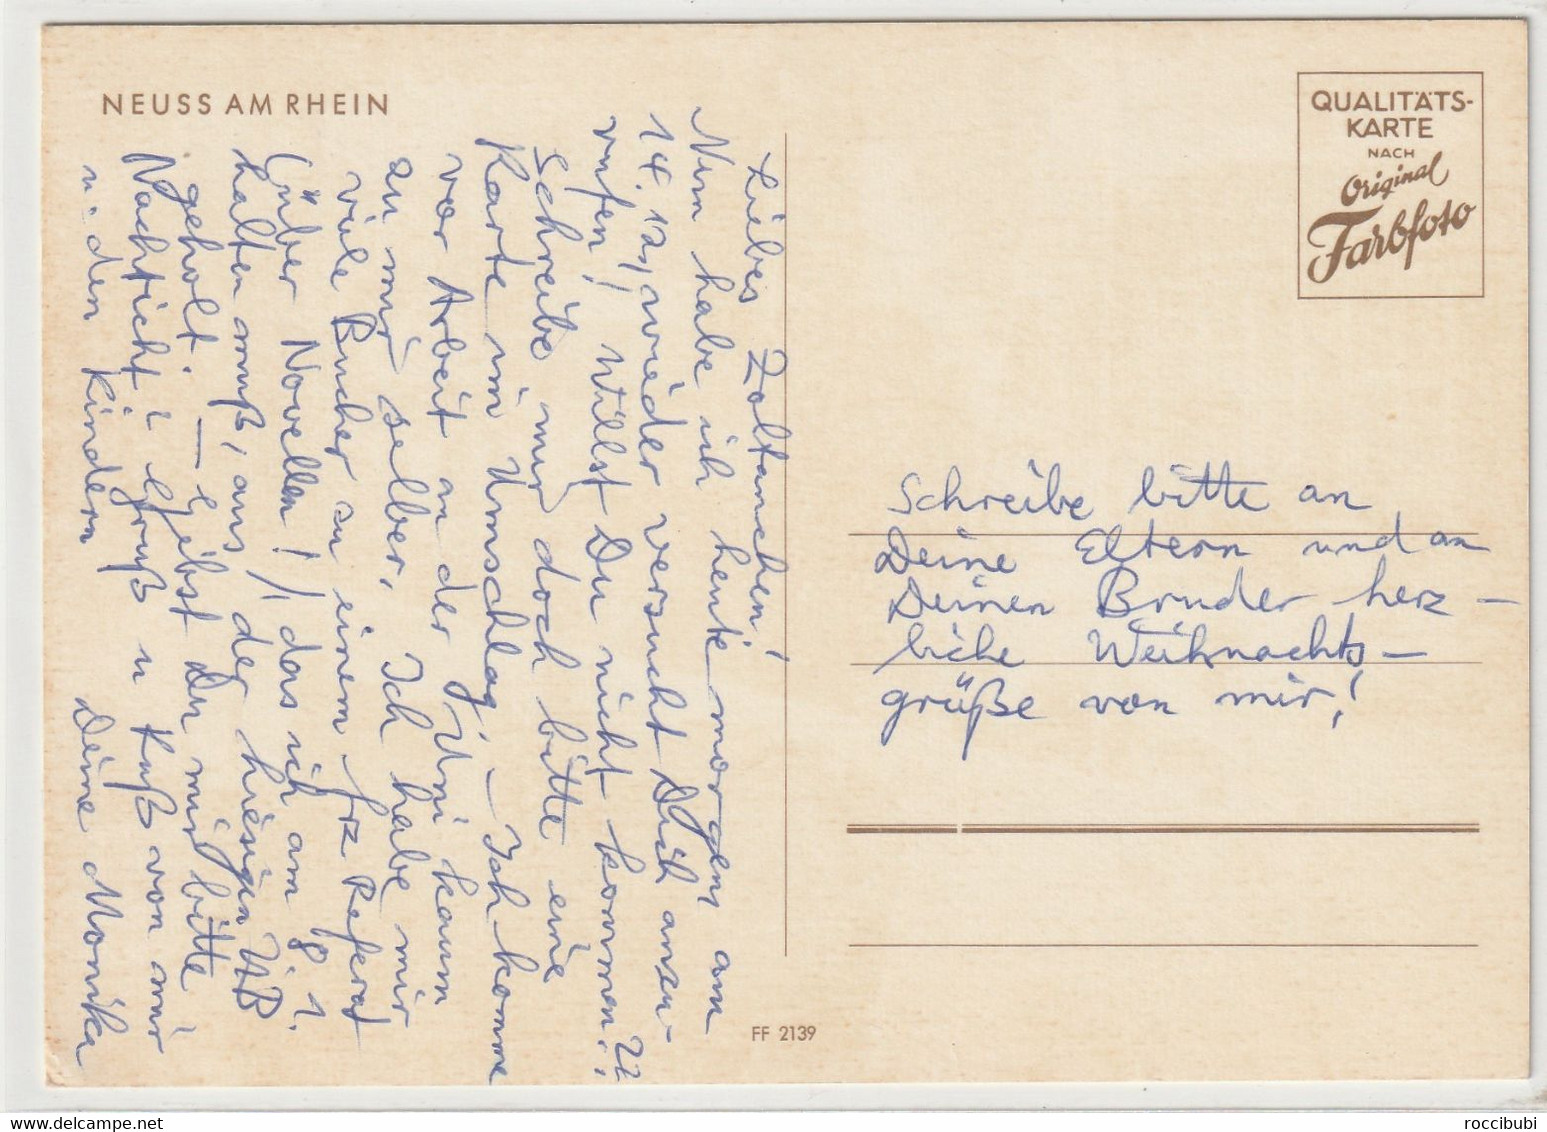 NEUSS AM RHEIN
Liebes Zoltanchen!
Nun habe ich heute morgen am
14. 12. wieder versucht Dich anzu-
rufen! Willst Du nicht kommen??
Schreibe mir doch bitte eine
Karte im Umschlag, – Ich komme
vor Arbeit an der Uni kaum
zu mir selber. Ich habe mir
viele Bücher zu einem frz Referat
(über Novellen!), das ich am 8. 1.
halten muß, aus der hiesigen UB
geholt. – Gibst Du mir bitte
Nachricht? Gruß u Kuß von mir
u. den Kindern Deine Monika
QUALITÄTS-
KARTE
NACH
Original
Farbfoto
Schreibe bitte an
Deine Eltern und an
Deinen Bruder herz-
liche Weihnachts-
grüße von mir!
FF 2139
www.delcampe.net
roccibubi